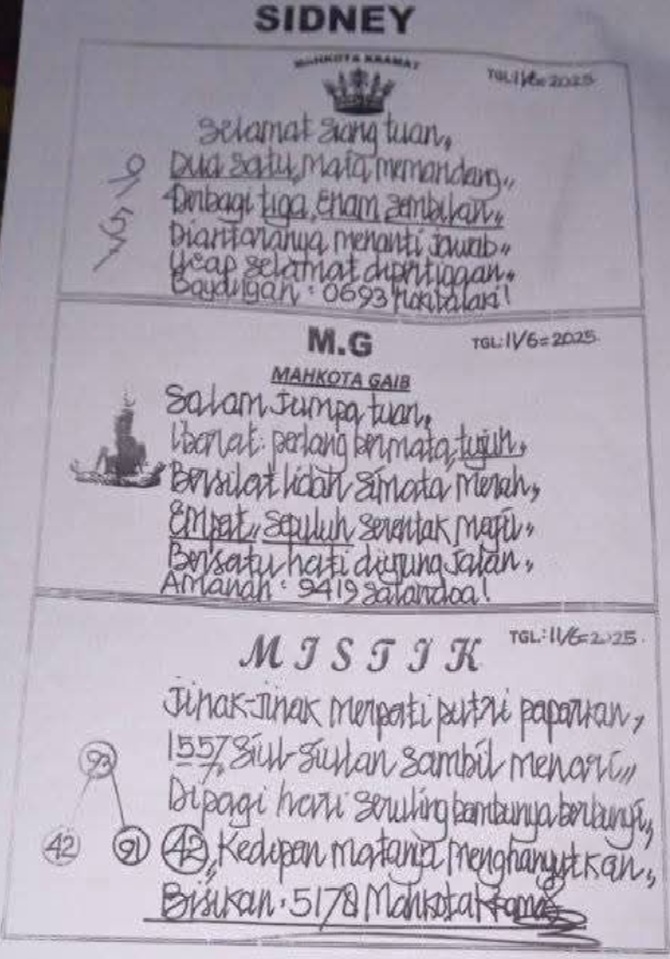 SIDNEY
MAHKOTA KRAMAT
TGL:11/6=2025
Selamat siang tuan,
9 Dua satu, mata memandang,,
Terbagi tiga, enam sembilan,,
5 Diantaranya menanti jawab,,
7 Ucap selamat dipertigaan,
Bayangan: 0693 hokitalari!
M.G
TGL:11/6=2025
MAHKOTA GAIB
Salam jumpa tuan,
Ibarat perlang bermata, tujuh,
Bersilat lidah simata merah,
Empat,, sepuluh serentak maju,,
Bersatu hati diujung jalan,
Amanah: 9419 salamdoa!
MISTIK
TGL:11/6=2025
Jinak-jinak merpati putri paparkan,
1557, siul-siulan sambil menari,,
93
Dipagi hari seruling bambunya berbunyi,
42 91 42,, Kedipan matanya menghanyutkan,,
Bisikan: 5178 Mahkota